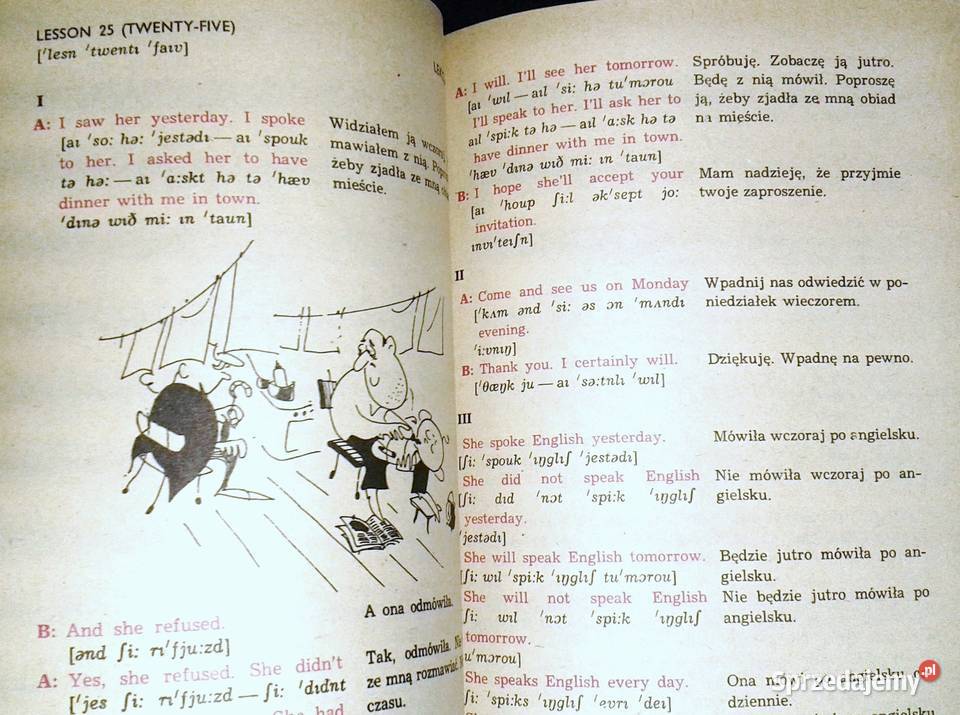 LESSON 25 (TWENTY-FIVE)
[ˈlesn ˈtwentɪ ˈfaɪv]
I
A: I saw her yesterday. I spoke
[aɪ ˈsoː həː ˈjestədɪ — aɪ ˈspouk
to her. I asked her to have
tə həː — aɪ ˈɑːskt hə tə ˈhæv
dinner with me in town.
ˈdɪnə wɪð miː ɪn ˈtaun]
Widziałem ją
mawiałem z nią.
żeby zjadła ze mną
mieście.
A ona odmówiła.
B: And she refused.
[ənd ʃiː rɪˈfjuːzd]
A: Yes, she refused. She didn't
[ˈjes ʃiː rɪˈfjuːzd — ʃiː ˈdɪdnt
She had
Tak, odmówiła.
ze mną
czasu.
A: I will. I'll see her tomorrow.
[aɪ ˈwɪl — aɪl ˈsiː hə tuˈmɔrou
I'll speak to her. I'll ask her to
aɪl ˈspiːk tə hə — aɪl ˈɑːsk hə tə
have dinner with me in town.
ˈhæv ˈdɪnə wɪð miː ɪn ˈtaun]
B: I hope she'll accept your
[aɪ ˈhoup ʃiːl əkˈsept joː
invitation.
ɪnvɪˈteɪʃn]
Spróbuję. Zobaczę ją jutro.
Będę z nią mówił. Poproszę
ją, żeby zjadła ze mną obiad
na mieście.
Mam nadzieję, że przyjmie
twoje zaproszenie.
II
A: Come and see us on Monday
[ˈkʌm ənd ˈsiː əs ɔn ˈmʌndɪ
evening.
ˈiːvnɪŋ]
B: Thank you. I certainly will.
[ˈθæŋk ju — aɪ ˈsəːtnlɪ ˈwɪl]
Wpadnij nas odwiedzić w po-
niedziałek wieczorem.
Dziękuję. Wpadnę na pewno.
III
She spoke English yesterday.
[ʃiː ˈspouk ˈɪŋglɪʃ ˈjestədɪ]
She did not speak English
[ʃiː dɪd ˈnɔt ˈspiːk ˈɪŋglɪʃ
yesterday.
ˈjestədɪ]
She will speak English tomorrow.
[ʃiː wɪl ˈspiːk ˈɪŋglɪʃ tuˈmɔrou]
She will not speak English
ʃiː wɪl ˈnɔt ˈspiːk ˈɪŋglɪʃ
tomorrow.
uˈmɔrou]
She speaks English every day.
[ʃiː ˈspiːks ˈɪŋglɪʃ ˈevrɪ ˈdeɪ]
Mówiła wczoraj po angielsku.
Nie mówiła wczoraj po an-
gielsku.
Będzie jutro mówiła po an-
gielsku.
Nie będzie jutro mówiła po
angielsku.
Ona mówi po angielsku co-
dziennie.
angielsku
Sprzedajemy.pl